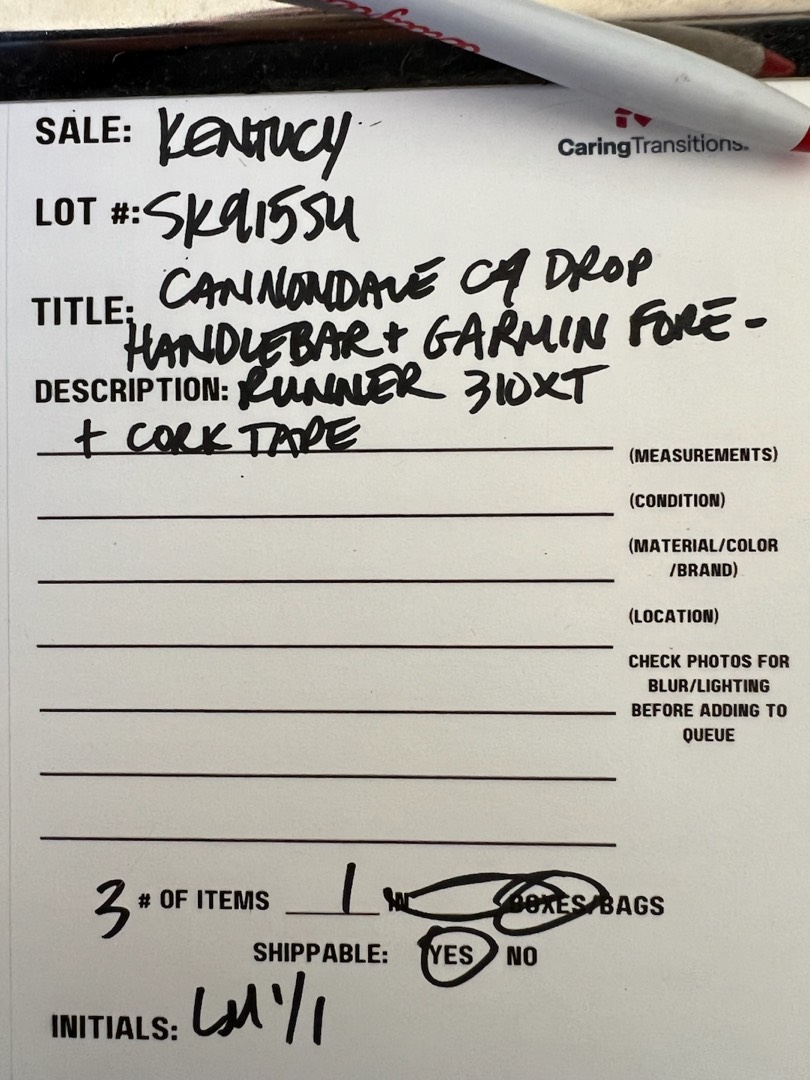 SALE: KENTUCY
CaringTransitions.
LOT #: SK9155U
TITLE: CANNONDALE C4 DROP
HANDLEBAR + GARMIN FORE-
DESCRIPTION: RUNNER 310XT
+ CORK TAPE
(MEASUREMENTS)
(CONDITION)
(MATERIAL/COLOR
/BRAND)
(LOCATION)
CHECK PHOTOS FOR
BLUR/LIGHTING
BEFORE ADDING TO
QUEUE
3 # OF ITEMS 1 IN BOXES/BAGS
SHIPPABLE: YES NO
INITIALS: LM 1/1